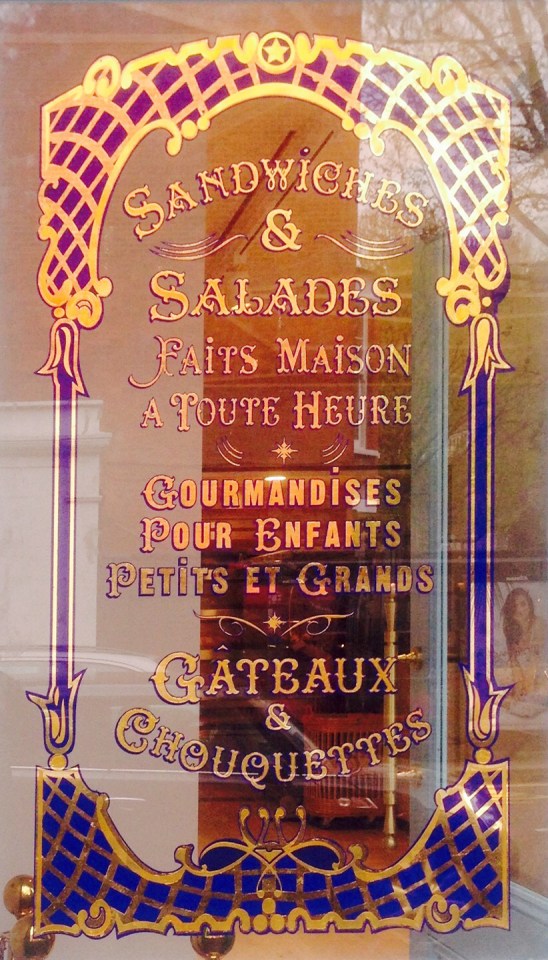 SANDWICHES
&
SALADES
FAITS MAISON
A TOUTE HEURE
GOURMANDISES
POUR ENFANTS
PETITS ET GRANDS
GÂTEAUX
&
CHOUQUETTES